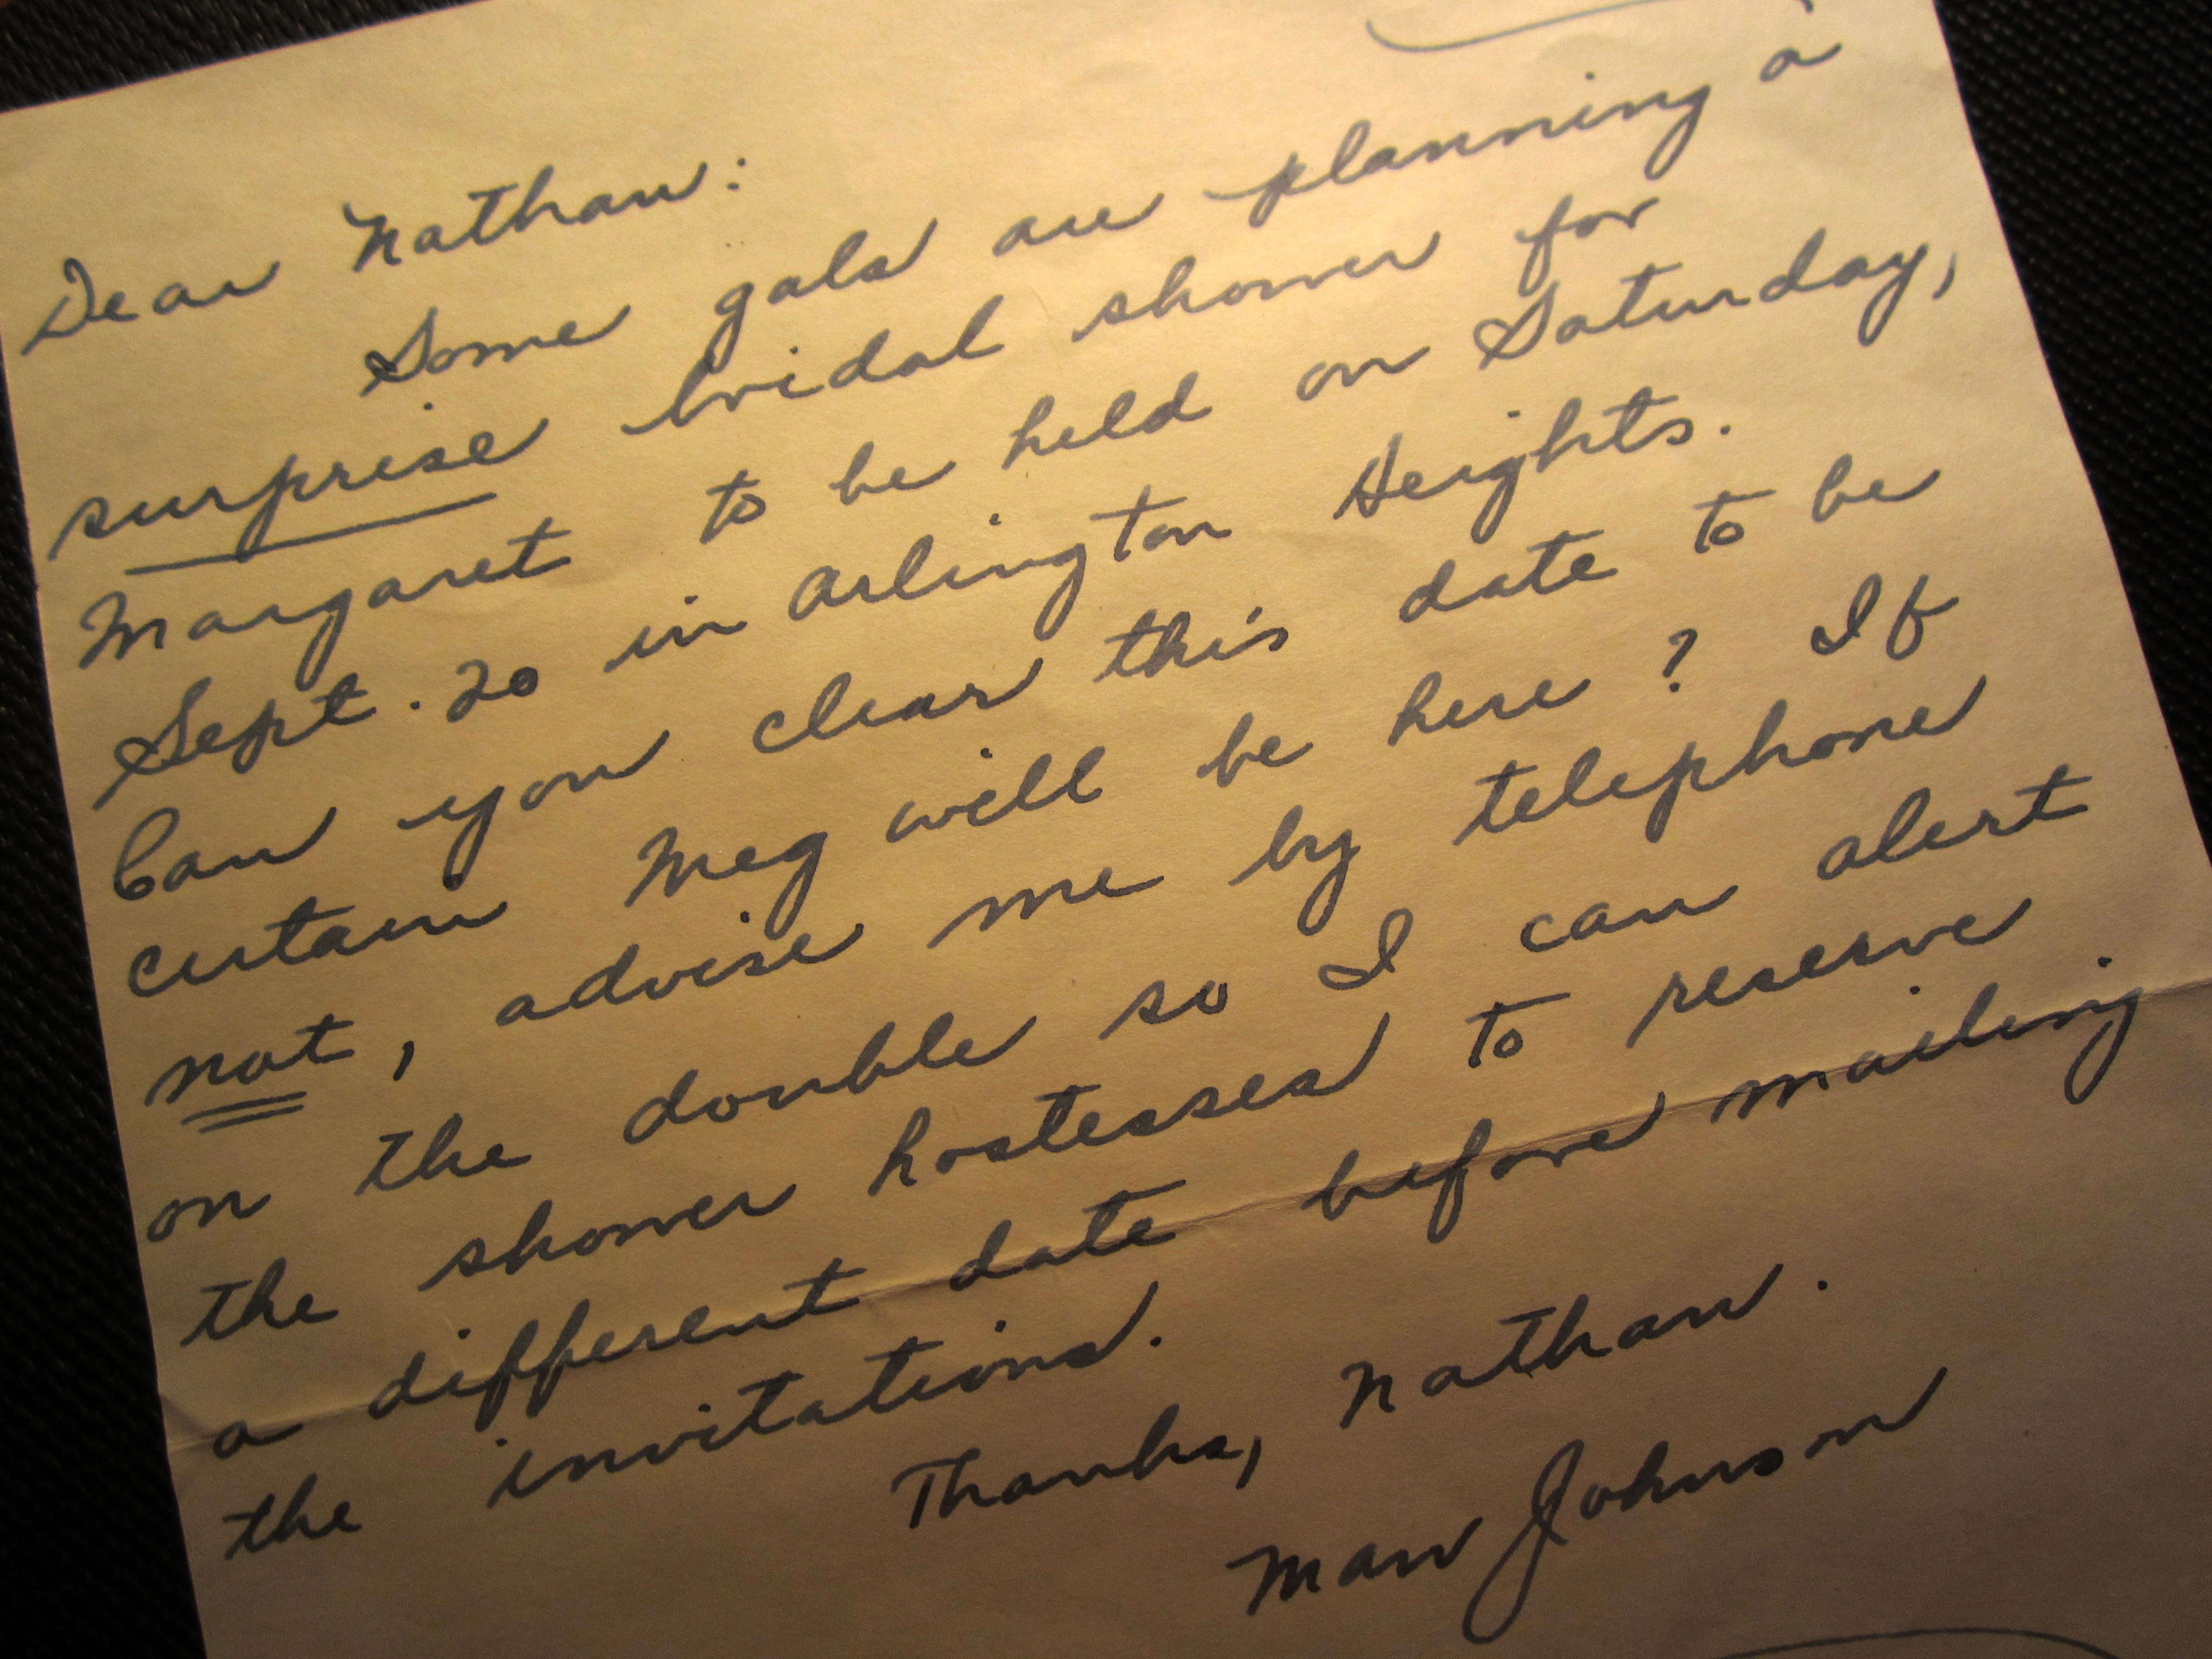 Dear Nathan:
Some gals are planning a
surprise bridal shower for
Margaret to be held on Saturday,
Sept. 20 in Arlington Heights.
Can you clear this date to be
certain Meg will be here? If
not, advise me by telephone
on the double so I can alert
the shower hostesses to reserve
a different date before mailing
the invitations.
Thanks, Nathan.
Maw Johnson